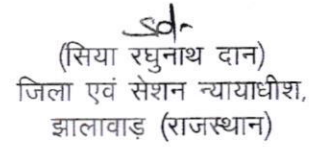 sd-
(सिया रघुनाथ दान)
जिला एवं सेशन न्यायाधीश,
झालावाड़ (राजस्थान)